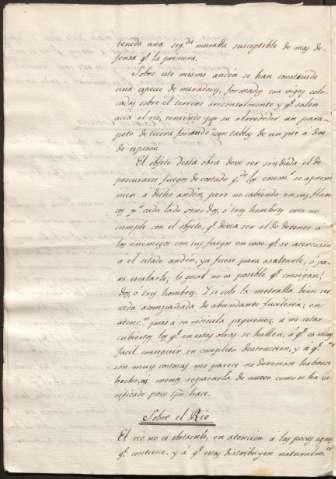 tenido una seg.da muralla susceptible de mas de
fensa q.e la primera.
Sobre este mismo andén se han construido
una especie de miradores, formados con vigas colo
cadas sobre el terreno orizontalmente y q.e salen
acia el rio, teniendo por su alrededor un para
peto de tierra forrado con tablas de un pie a dos
de espesor.
El objeto desta obra deve ser sin duda el de
procurarse fuegos de costado q.do los enem.s se aprocsi
men á dicho andén, pero no cabiendo en sus flan
cos p.r cada lado sino dos, ó tres hombres, creo no
cumple con el objeto, q.e deverá ser el de detener a
los enemigos con sus fuegos en caso q.e se acercasen
a el citado andén, ya fuese para asaltarle, ó pa
ra escalarle, lo qual no es posible q.e consigan
dos, ó tres hombres. Y si solo la metralla bien ser
vida acompañada de abundante fusileria; en
atenc.n pues a su ridicula pequeñez, a no estar
cubiertos los q.e en estas obras se hallen, á q.e es muy
facil conseguir su completa destruccion, y á q.e
son muy costosas me parece no deverian haberse
hecho, ni menos repararlas de nuevo como se ha ve
rificado poco tpo. hace.
Sobre el Rio
El rio no es obstaculo, en atencion a las pocas aguas
q.e contiene, y a q.e estas distribuyen naturalm.te